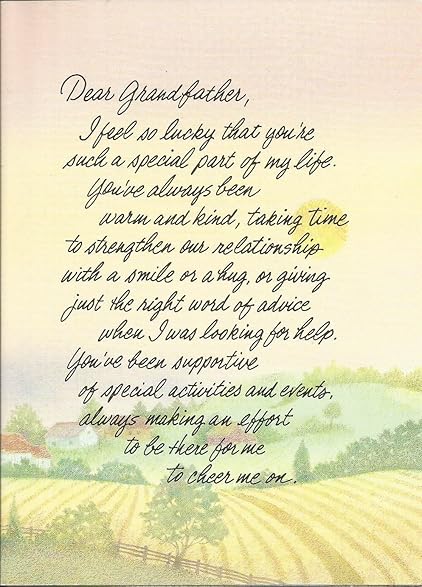 Dear Grandfather,
I feel so lucky that you're
such a special part of my life.
You've always been
warm and kind, taking time
to strengthen our relationship
with a smile or a hug, or giving
just the right word of advice
when I was looking for help.
You've been supportive
of special activities and events,
always making an effort
to be there for me
to cheer me on.